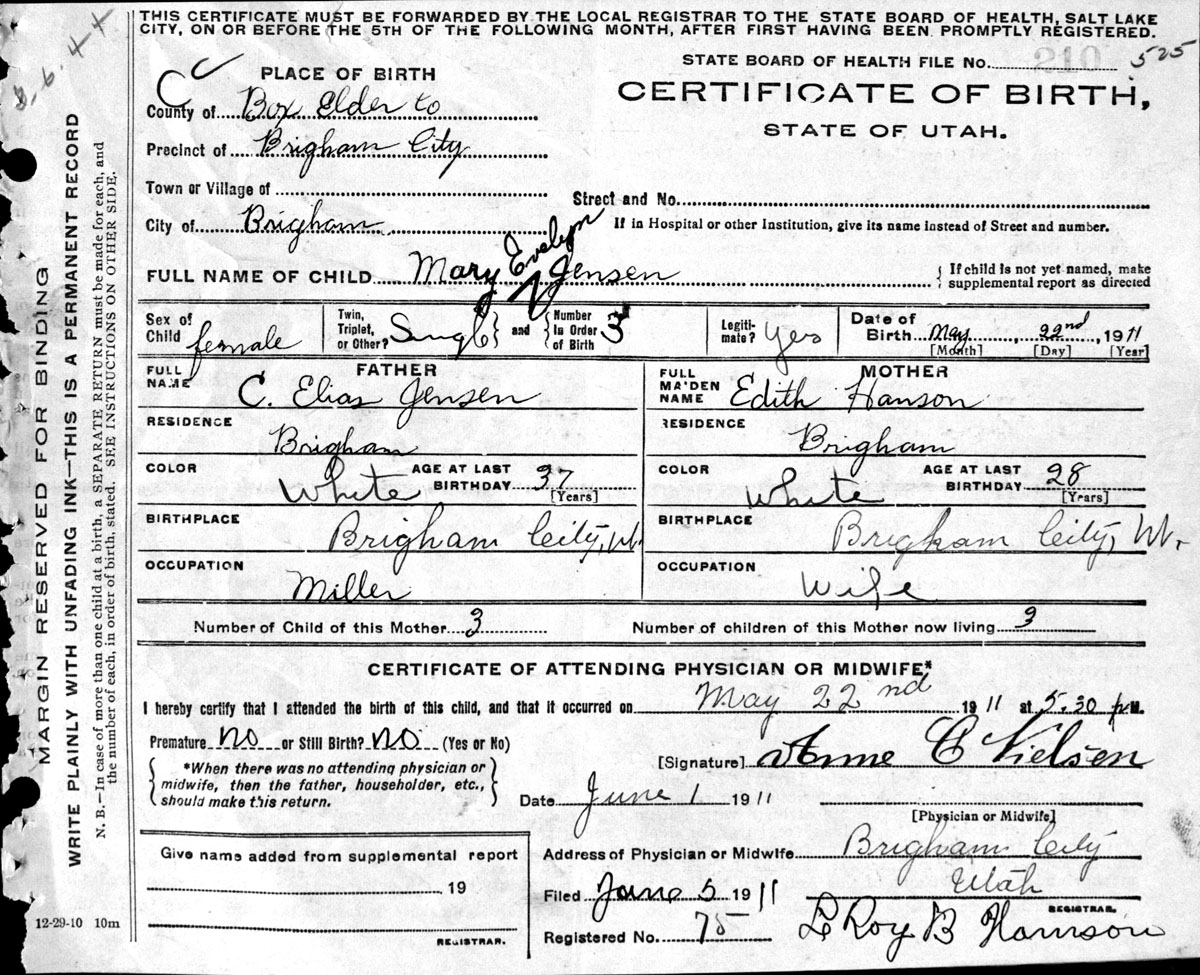 THIS CERTIFICATE MUST BE FORWARDED BY THE LOCAL REGISTRAR TO THE STATE BOARD OF HEALTH, SALT LAKE
CITY, ON OR BEFORE THE 5TH OF THE FOLLOWING MONTH, AFTER FIRST HAVING BEEN PROMPTLY REGISTERED.
STATE BOARD OF HEALTH FILE No. 210 525
CERTIFICATE OF BIRTH,
STATE OF UTAH.
PLACE OF BIRTH
County of Box Elder Co
Precinct of Brigham City
Town or Village of
Street and No.
City of Brigham
If in Hospital or other Institution, give its name instead of Street and number.
FULL NAME OF CHILD Mary Evelyn Jensen
If child is not yet named, make
supplemental report as directed
Sex of Child female
Twin, Triplet, or Other? Single and Number In Order of Birth 3
Legiti-mate? Yes
Date of Birth May, 22nd, 1911
[Month] [Day] [Year]
FATHER
FULL NAME C. Elias Jensen
RESIDENCE Brigham
COLOR White AGE AT LAST BIRTHDAY 37
[Years]
BIRTHPLACE Brigham City, Ut.
OCCUPATION Miller
MOTHER
FULL MAIDEN NAME Edith Hanson
RESIDENCE Brigham
COLOR White AGE AT LAST BIRTHDAY 28
[Years]
BIRTHPLACE Brigham City, Ut.
OCCUPATION Wife
Number of Child of this Mother 3 Number of children of this Mother now living 3
CERTIFICATE OF ATTENDING PHYSICIAN OR MIDWIFE*
I hereby certify that I attended the birth of this child, and that it occurred on May 22nd 1911 at 5.30 p M.
Premature no or Still Birth? no (Yes or No)
*When there was no attending physician or
midwife, then the father, householder, etc.,
should make this return.
[Signature] Anne C Nielsen
Date June 1 1911
[Physician or Midwife]
Address of Physician or Midwife Brigham City
Utah
Give name added from supplemental report
19
REGISTRAR.
Filed June 5 1911
REGISTRAR.
Registered No. 75 LeRoy B
12-29-10 10m
MARGIN RESERVED FOR BINDING
WRITE PLAINLY WITH UNFADING INK—THIS IS A PERMANENT RECORD
N. B.—In case of more than one child at a birth, a SEPARATE RETURN must be made for each, and
the number of each, in order of birth, stated. SEE INSTRUCTIONS ON OTHER SIDE.